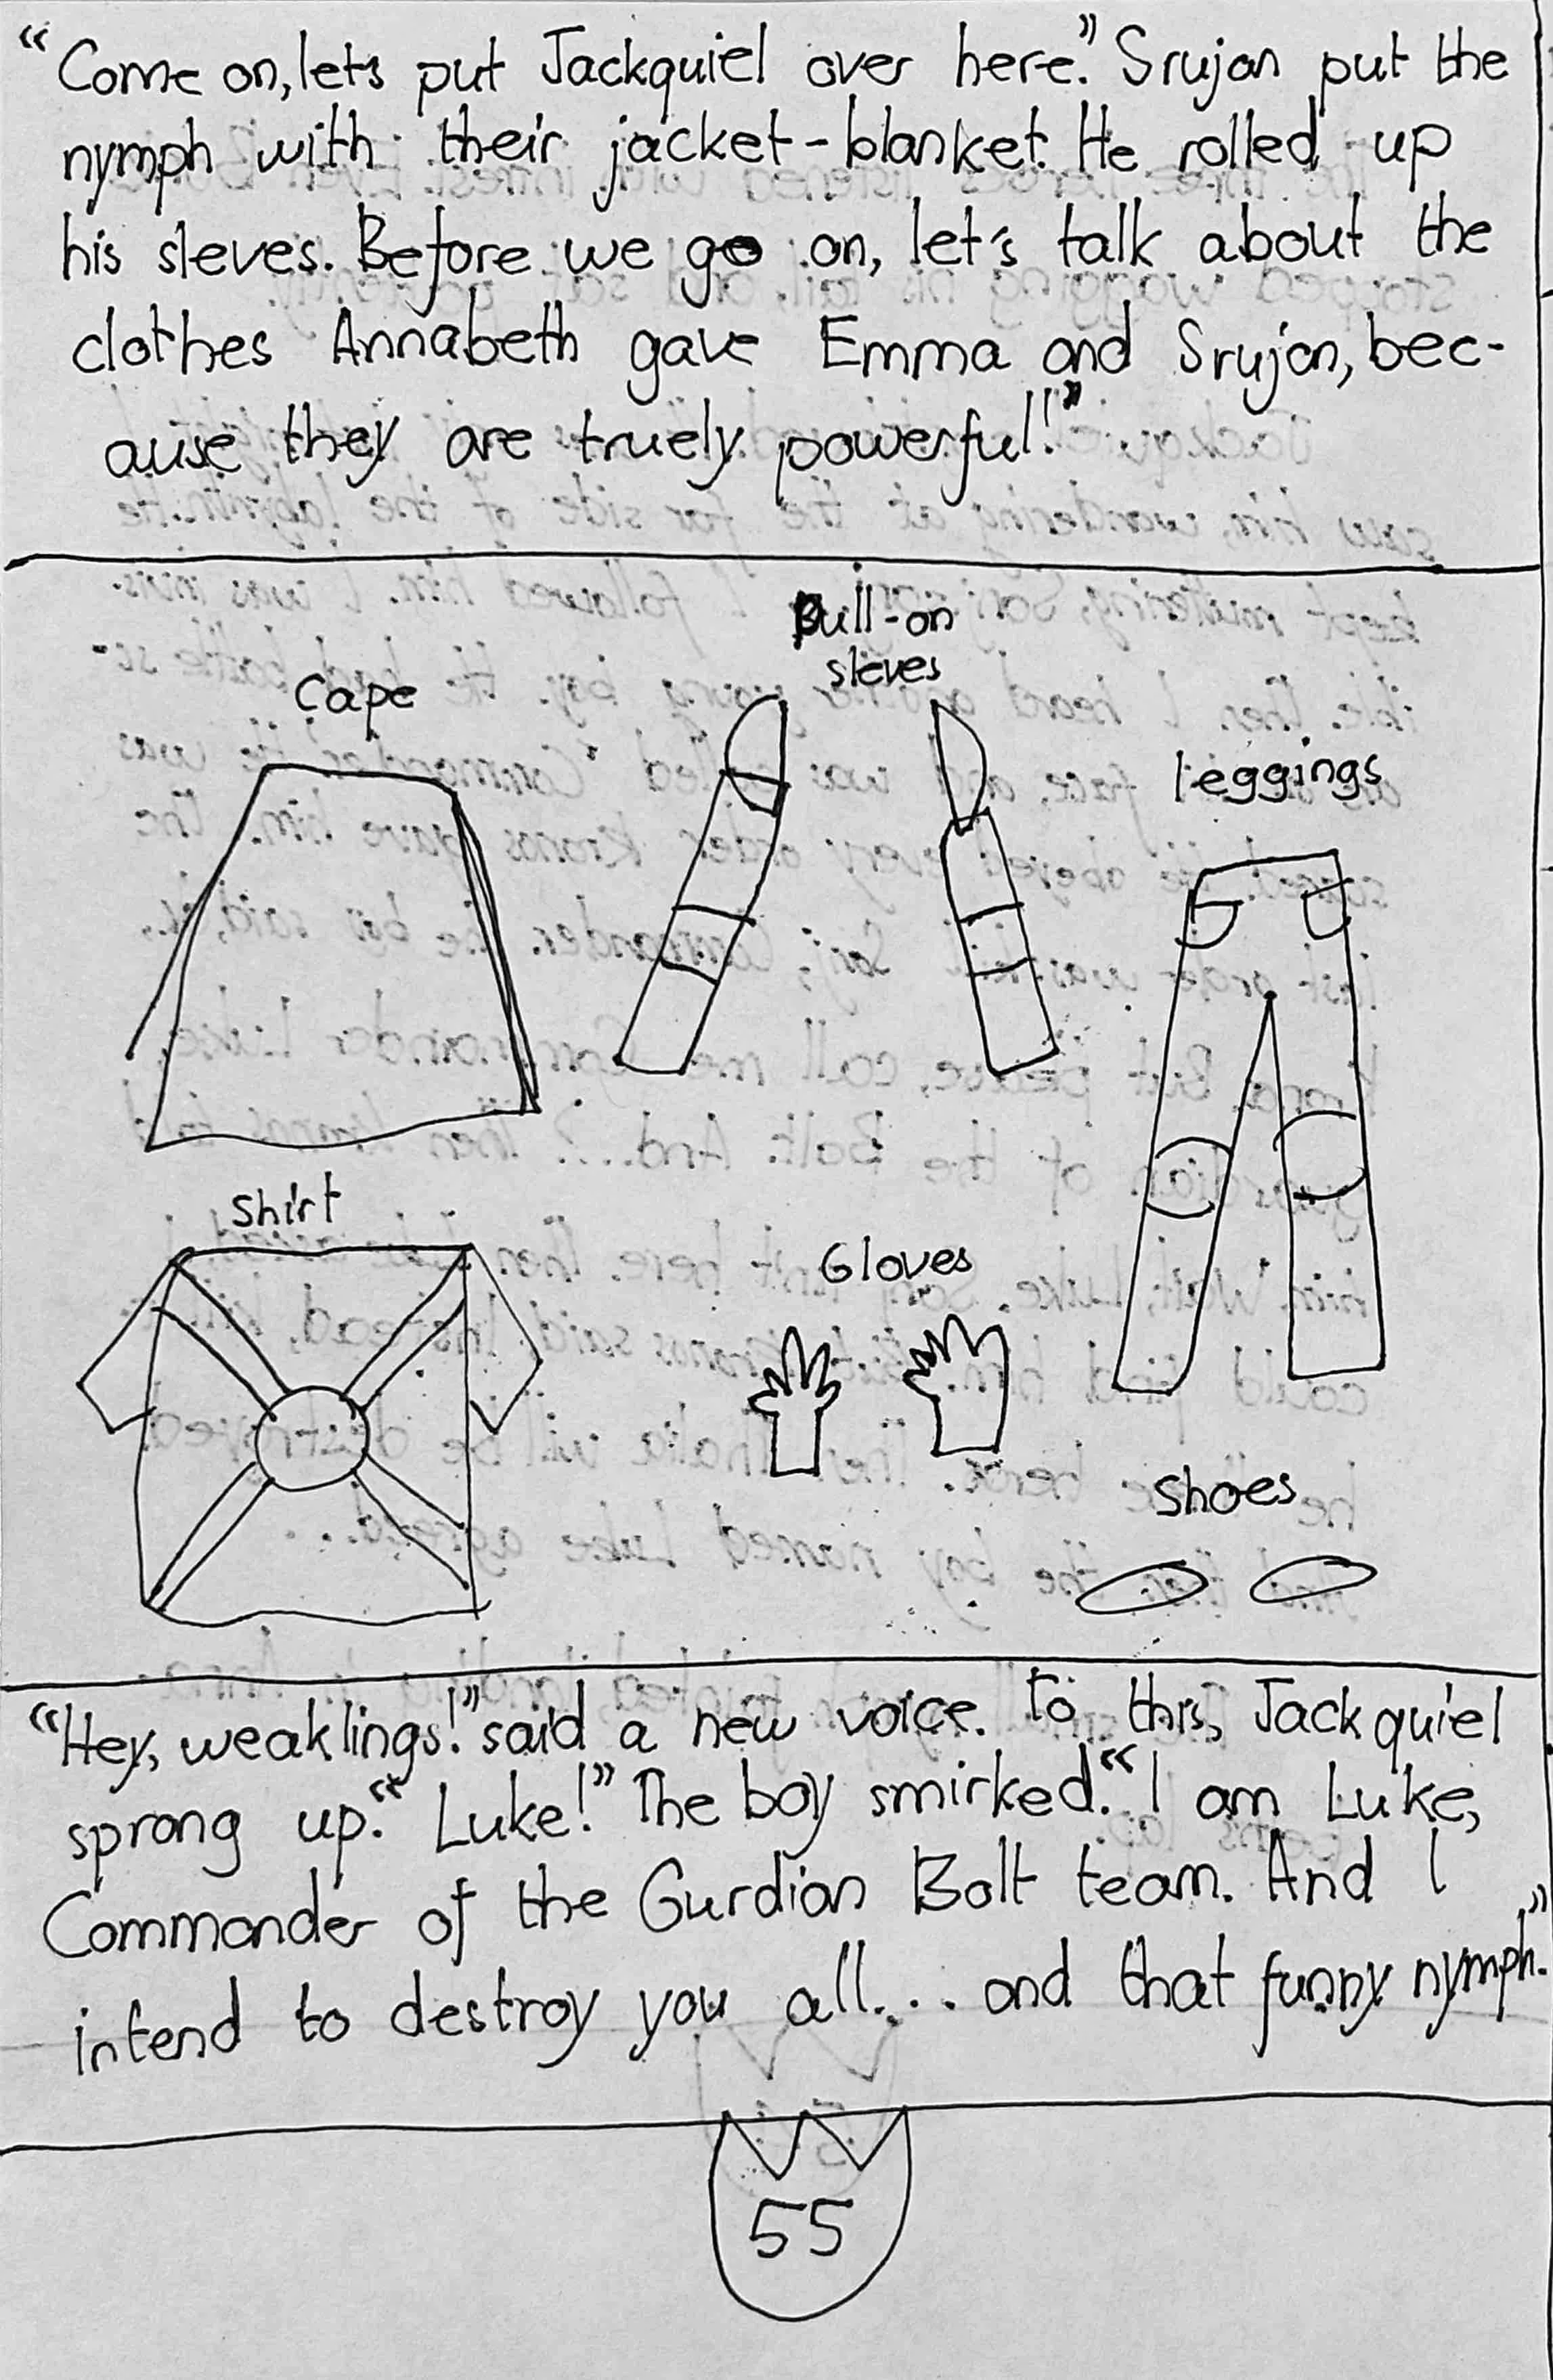 “Come on, lets put Jackquiel over here.” Srujan put the
nymph with their jacket-blanket. He rolled up
his sleves. Before we go on, let's talk about the
clothes Annabeth gave Emma and Srujan, bec-
ause they are truely powerful!”
Pull-on
sleves
Cape
leggings
Shirt
Gloves
Shoes
“Hey, weaklings!” said a new voice. To this, Jackquiel
sprong up. “Luke!” The boy smirked. “I am Luke,
Commander of the Gurdian Bolt team. And I
intend to destroy you all... and that funny nymph.”
55